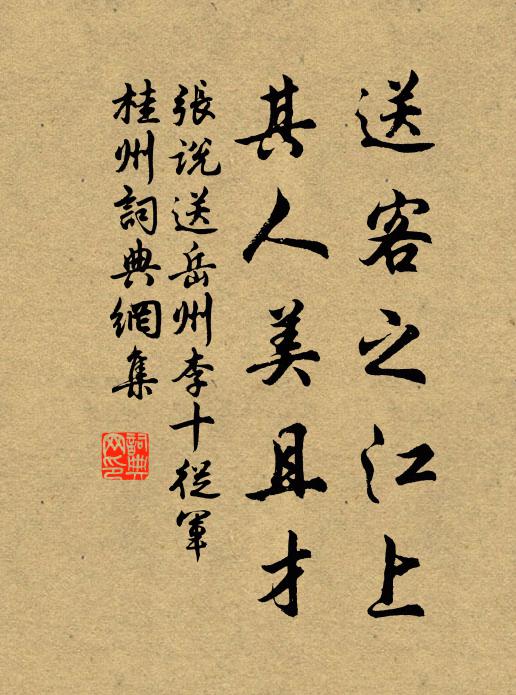 送客之江上
其人美且才
張説送岳州李十從軍
桂州詞典網集
詞典網印